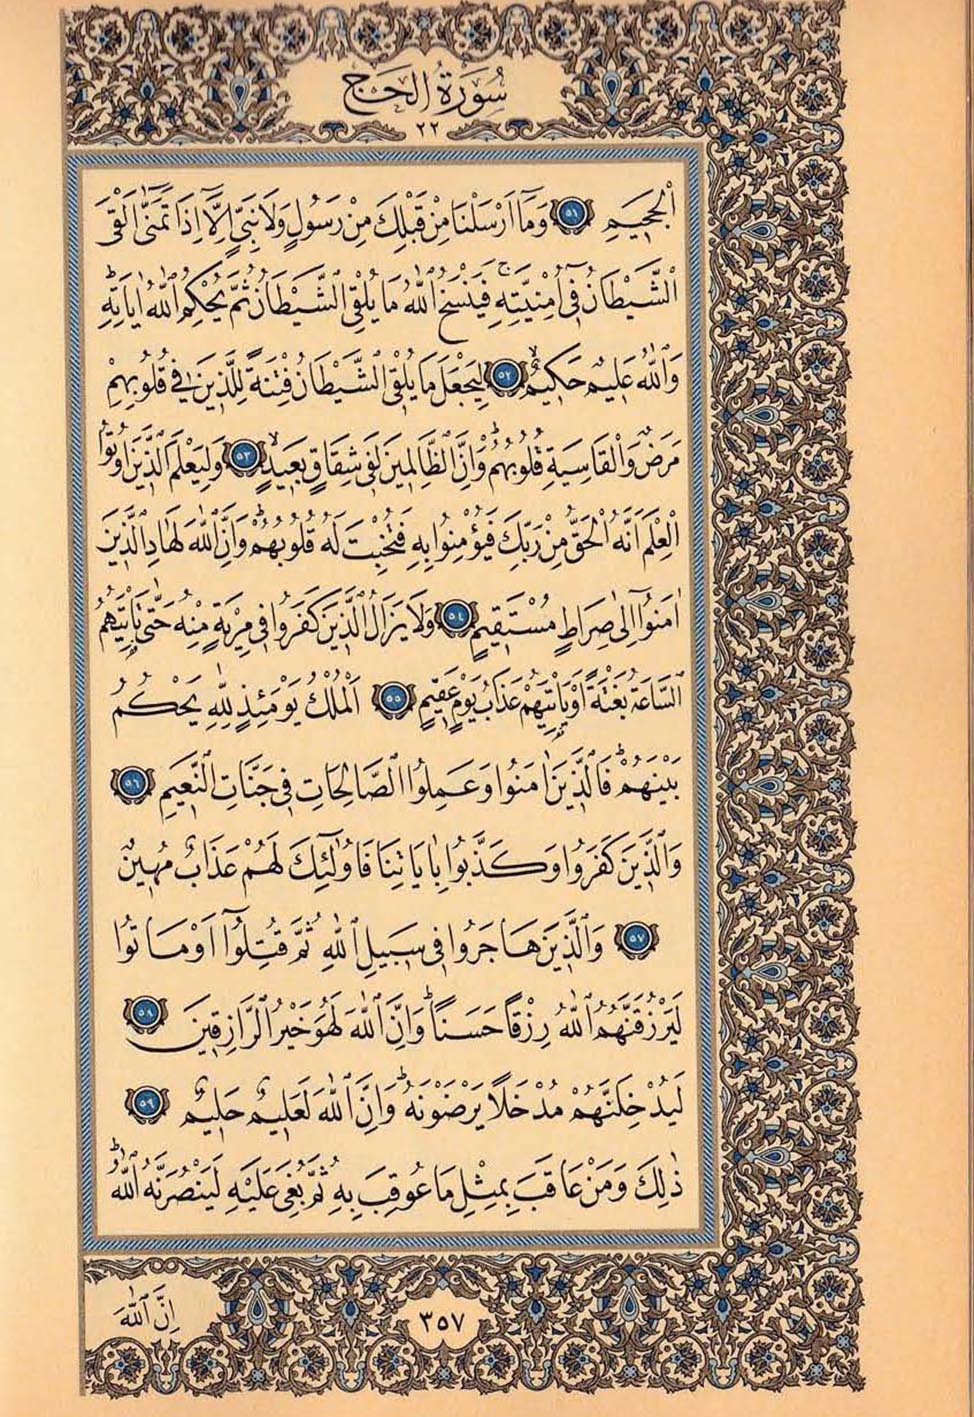 سُورَةُ الْحَجّ
٢٢
الْجَحِيمِ ٥١ وَمَا اَرْسَلْنَا مِنْ قَبْلِكَ مِنْ رَسُولٍ وَلَا نَبِيٍّ اِلَّٓا اِذَا تَمَنّٰىٓ اَلْقَى
الشَّيْطَانُ فٖٓى اُمْنِيَّتِهٖ فَيَنْسَخُ اللّٰهُ مَا يُلْقِى الشَّيْطَانُ ثُمَّ يُحْكِمُ اللّٰهُ اٰيَاتِهٖ
وَاللّٰهُ عَلٖيمٌ حَكٖيمٌ ٥٢ لِيَجْعَلَ مَا يُلْقِى الشَّيْطَانُ فِتْنَةً لِلَّذٖينَ فٖى قُلُوبِهِمْ
مَرَضٌ وَالْقَاسِيَةِ قُلُوبُهُمْ وَاِنَّ الظَّالِمٖينَ لَفٖى شِقَاقٍ بَعٖيدٍ ٥٣ وَلِيَعْلَمَ الَّذٖينَ اُوتُوا
الْعِلْمَ اَنَّهُ الْحَقُّ مِنْ رَبِّكَ فَيُؤْمِنُوا بِهٖ فَتُخْبِتَ لَهُ قُلُوبُهُمْ وَاِنَّ اللّٰهَ لَهَادِ الَّذٖينَ
اٰمَنُٓوا اِلٰى صِرَاطٍ مُسْتَقٖيمٍ ٥٤ وَلَا يَزَالُ الَّذٖينَ كَفَرُوا فٖى مِرْيَةٍ مِنْهُ حَتّٰى تَاْتِيَهُمُ
السَّاعَةُ بَغْتَةً اَوْ يَاْتِيَهُمْ عَذَابُ يَوْمٍ عَقٖيمٍ ٥٥ اَلْمُلْكُ يَوْمَئِذٍ لِلّٰهِ يَحْكُمُ
بَيْنَهُمْ فَالَّذٖينَ اٰمَنُوا وَعَمِلُوا الصَّالِحَاتِ فٖى جَنَّاتِ النَّعٖيمِ ٥٦
وَالَّذٖينَ كَفَرُوا وَكَذَّبُوا بِاٰيَاتِنَا فَاُولٰٓئِكَ لَهُمْ عَذَابٌ مُهٖينٌ
٥٧ وَالَّذٖينَ هَاجَرُوا فٖى سَبٖيلِ اللّٰهِ ثُمَّ قُتِلُٓوا اَوْ مَاتُوا
لَيَرْزُقَنَّهُمُ اللّٰهُ رِزْقًا حَسَنًا وَاِنَّ اللّٰهَ لَهُوَ خَيْرُ الرَّازِقٖينَ ٥٨
لَيُدْخِلَنَّهُمْ مُدْخَلًا يَرْضَوْنَهُ وَاِنَّ اللّٰهَ لَعَلٖيمٌ حَلٖيمٌ ٥٩
ذٰلِكَ وَمَنْ عَاقَبَ بِمِثْلِ مَا عُوقِبَ بِهٖ ثُمَّ بُغِىَ عَلَيْهِ لَيَنْصُرَنَّهُ اللّٰهُ
٣٥٧
اِنَّ اللّٰهَ